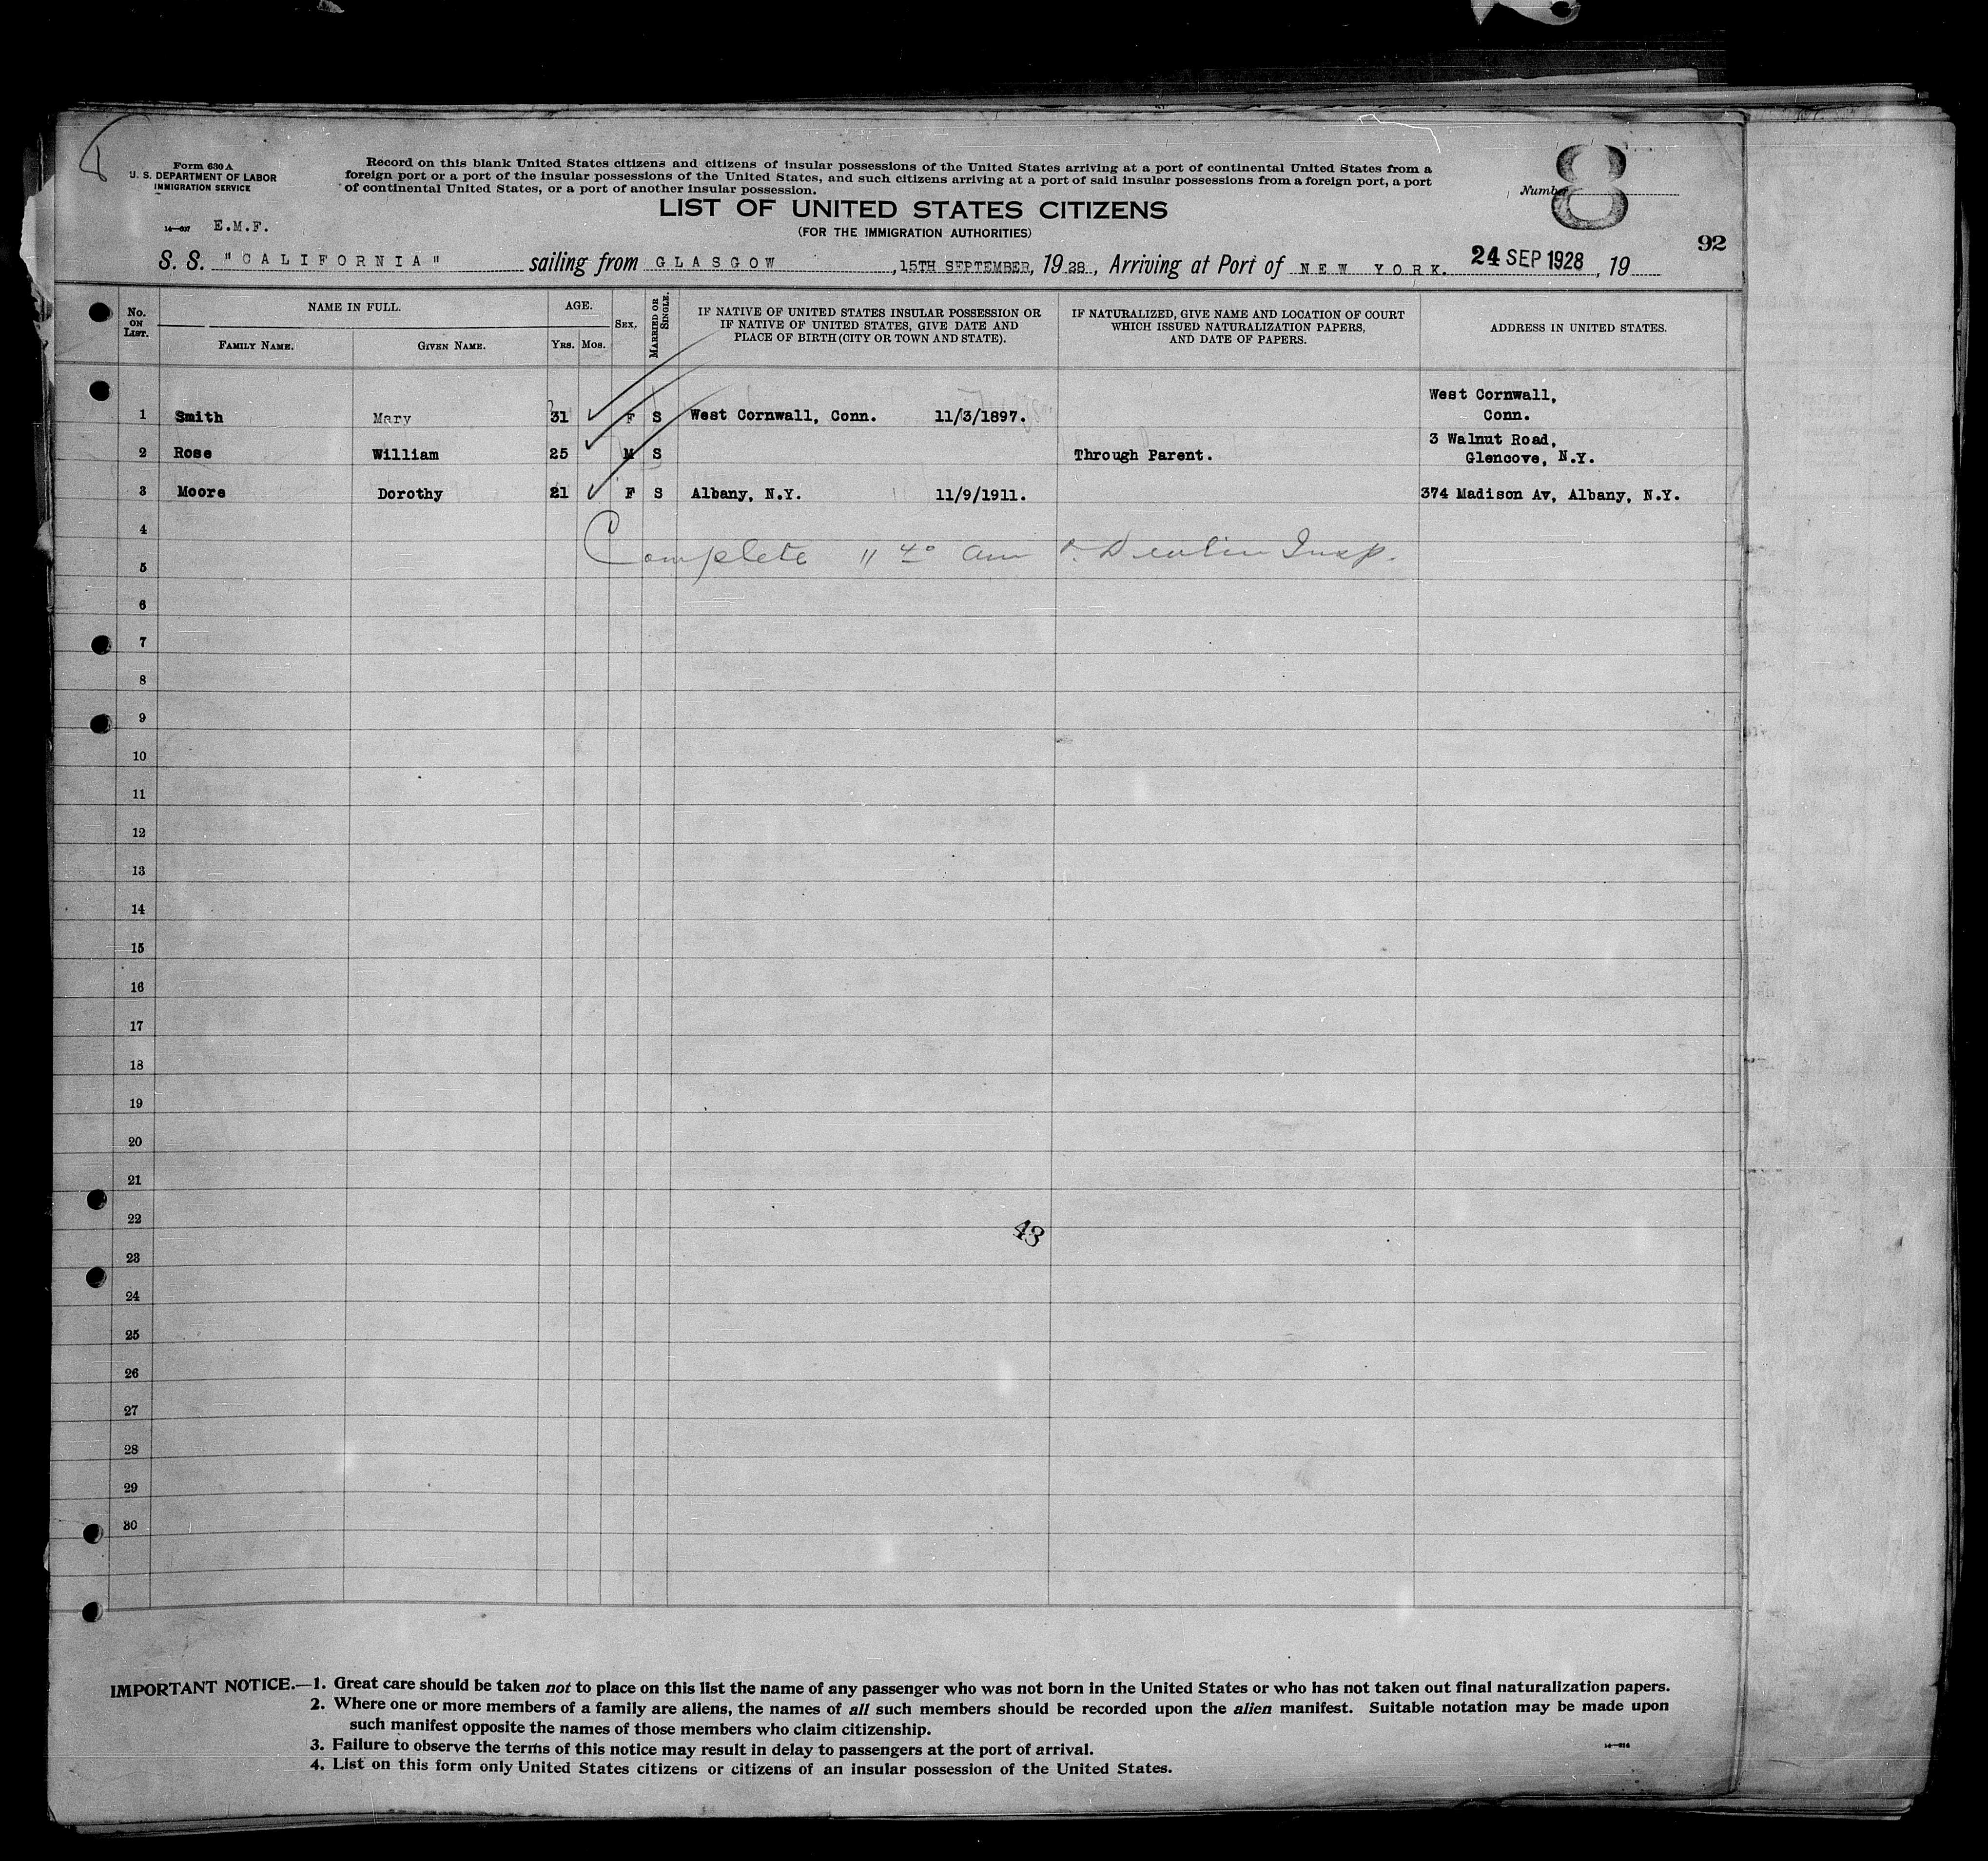 Form 630 A
U. S. DEPARTMENT OF LABOR
IMMIGRATION SERVICE
Record on this blank United States citizens and citizens of insular possessions of the United States arriving at a port of continental United States from a
foreign port or a port of the insular possessions of the United States, and such citizens arriving at a port of said insular possessions from a foreign port, a port
of continental United States, or a port of another insular possession.
LIST OF UNITED STATES CITIZENS
(FOR THE IMMIGRATION AUTHORITIES)
Number 8
92
14—607 E.M.F.
S. S. "CALIFORNIA" sailing from GLASGOW, 15TH SEPTEMBER, 1928, Arriving at Port of NEW YORK. 24 SEP 1928, 19
No. ON LIST.
NAME IN FULL.
FAMILY NAME. GIVEN NAME.
AGE.
YRS. MOS.
SEX.
MARRIED OR SINGLE.
IF NATIVE OF UNITED STATES INSULAR POSSESSION OR
IF NATIVE OF UNITED STATES, GIVE DATE AND
PLACE OF BIRTH (CITY OR TOWN AND STATE).
IF NATURALIZED, GIVE NAME AND LOCATION OF COURT
WHICH ISSUED NATURALIZATION PAPERS,
AND DATE OF PAPERS.
ADDRESS IN UNITED STATES.
1 Smith Mary 31 F S West Cornwall, Conn. 11/3/1897. West Cornwall,
Conn.
2 Rose William 25 M S Through Parent. 3 Walnut Road,
Glencove, N.Y.
3 Moore Dorothy 21 F S Albany, N.Y. 11/9/1911. 374 Madison Av, Albany, N.Y.
4
Complete 11 40 am Insp.
5
6
7
8
9
10
11
12
13
14
15
16
17
18
19
20
21
22
43
23
24
25
26
27
28
29
30
IMPORTANT NOTICE.—1. Great care should be taken not to place on this list the name of any passenger who was not born in the United States or who has not taken out final naturalization papers.
2. Where one or more members of a family are aliens, the names of all such members should be recorded upon the alien manifest. Suitable notation may be made upon
such manifest opposite the names of those members who claim citizenship.
3. Failure to observe the terms of this notice may result in delay to passengers at the port of arrival.
4. List on this form only United States citizens or citizens of an insular possession of the United States.